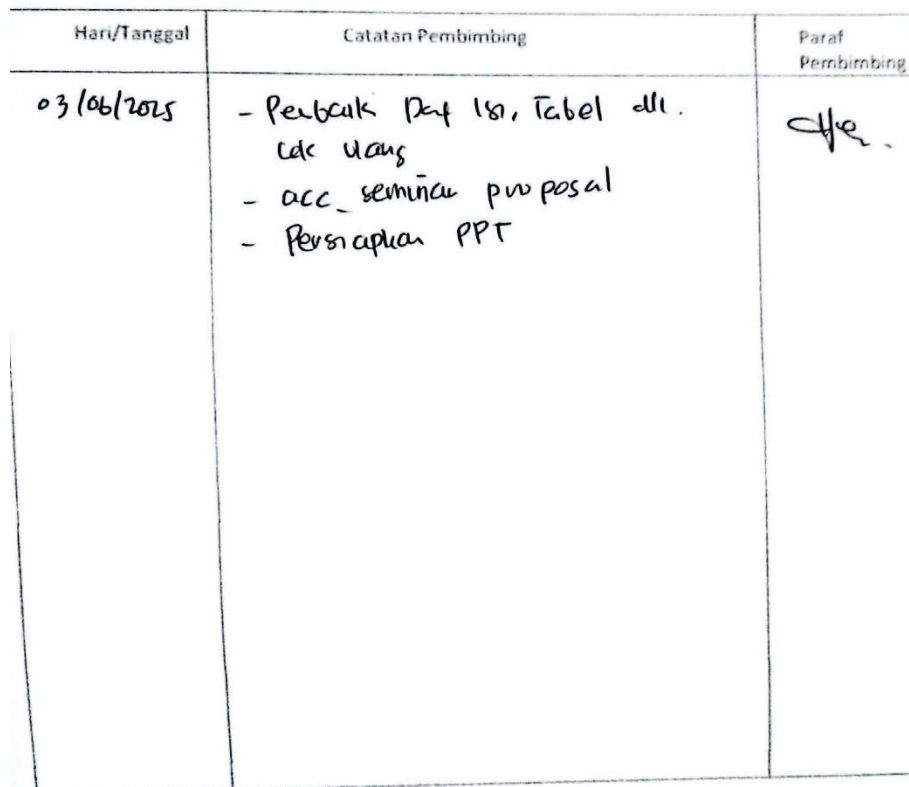 Hari/Tanggal
Catatan Pembimbing
Paraf
Pembimbing
03/06/2025
- Perbaik Daf Isi, Tabel dll.
cek ulang
- acc seminar proposal
- Persiapkan PPT